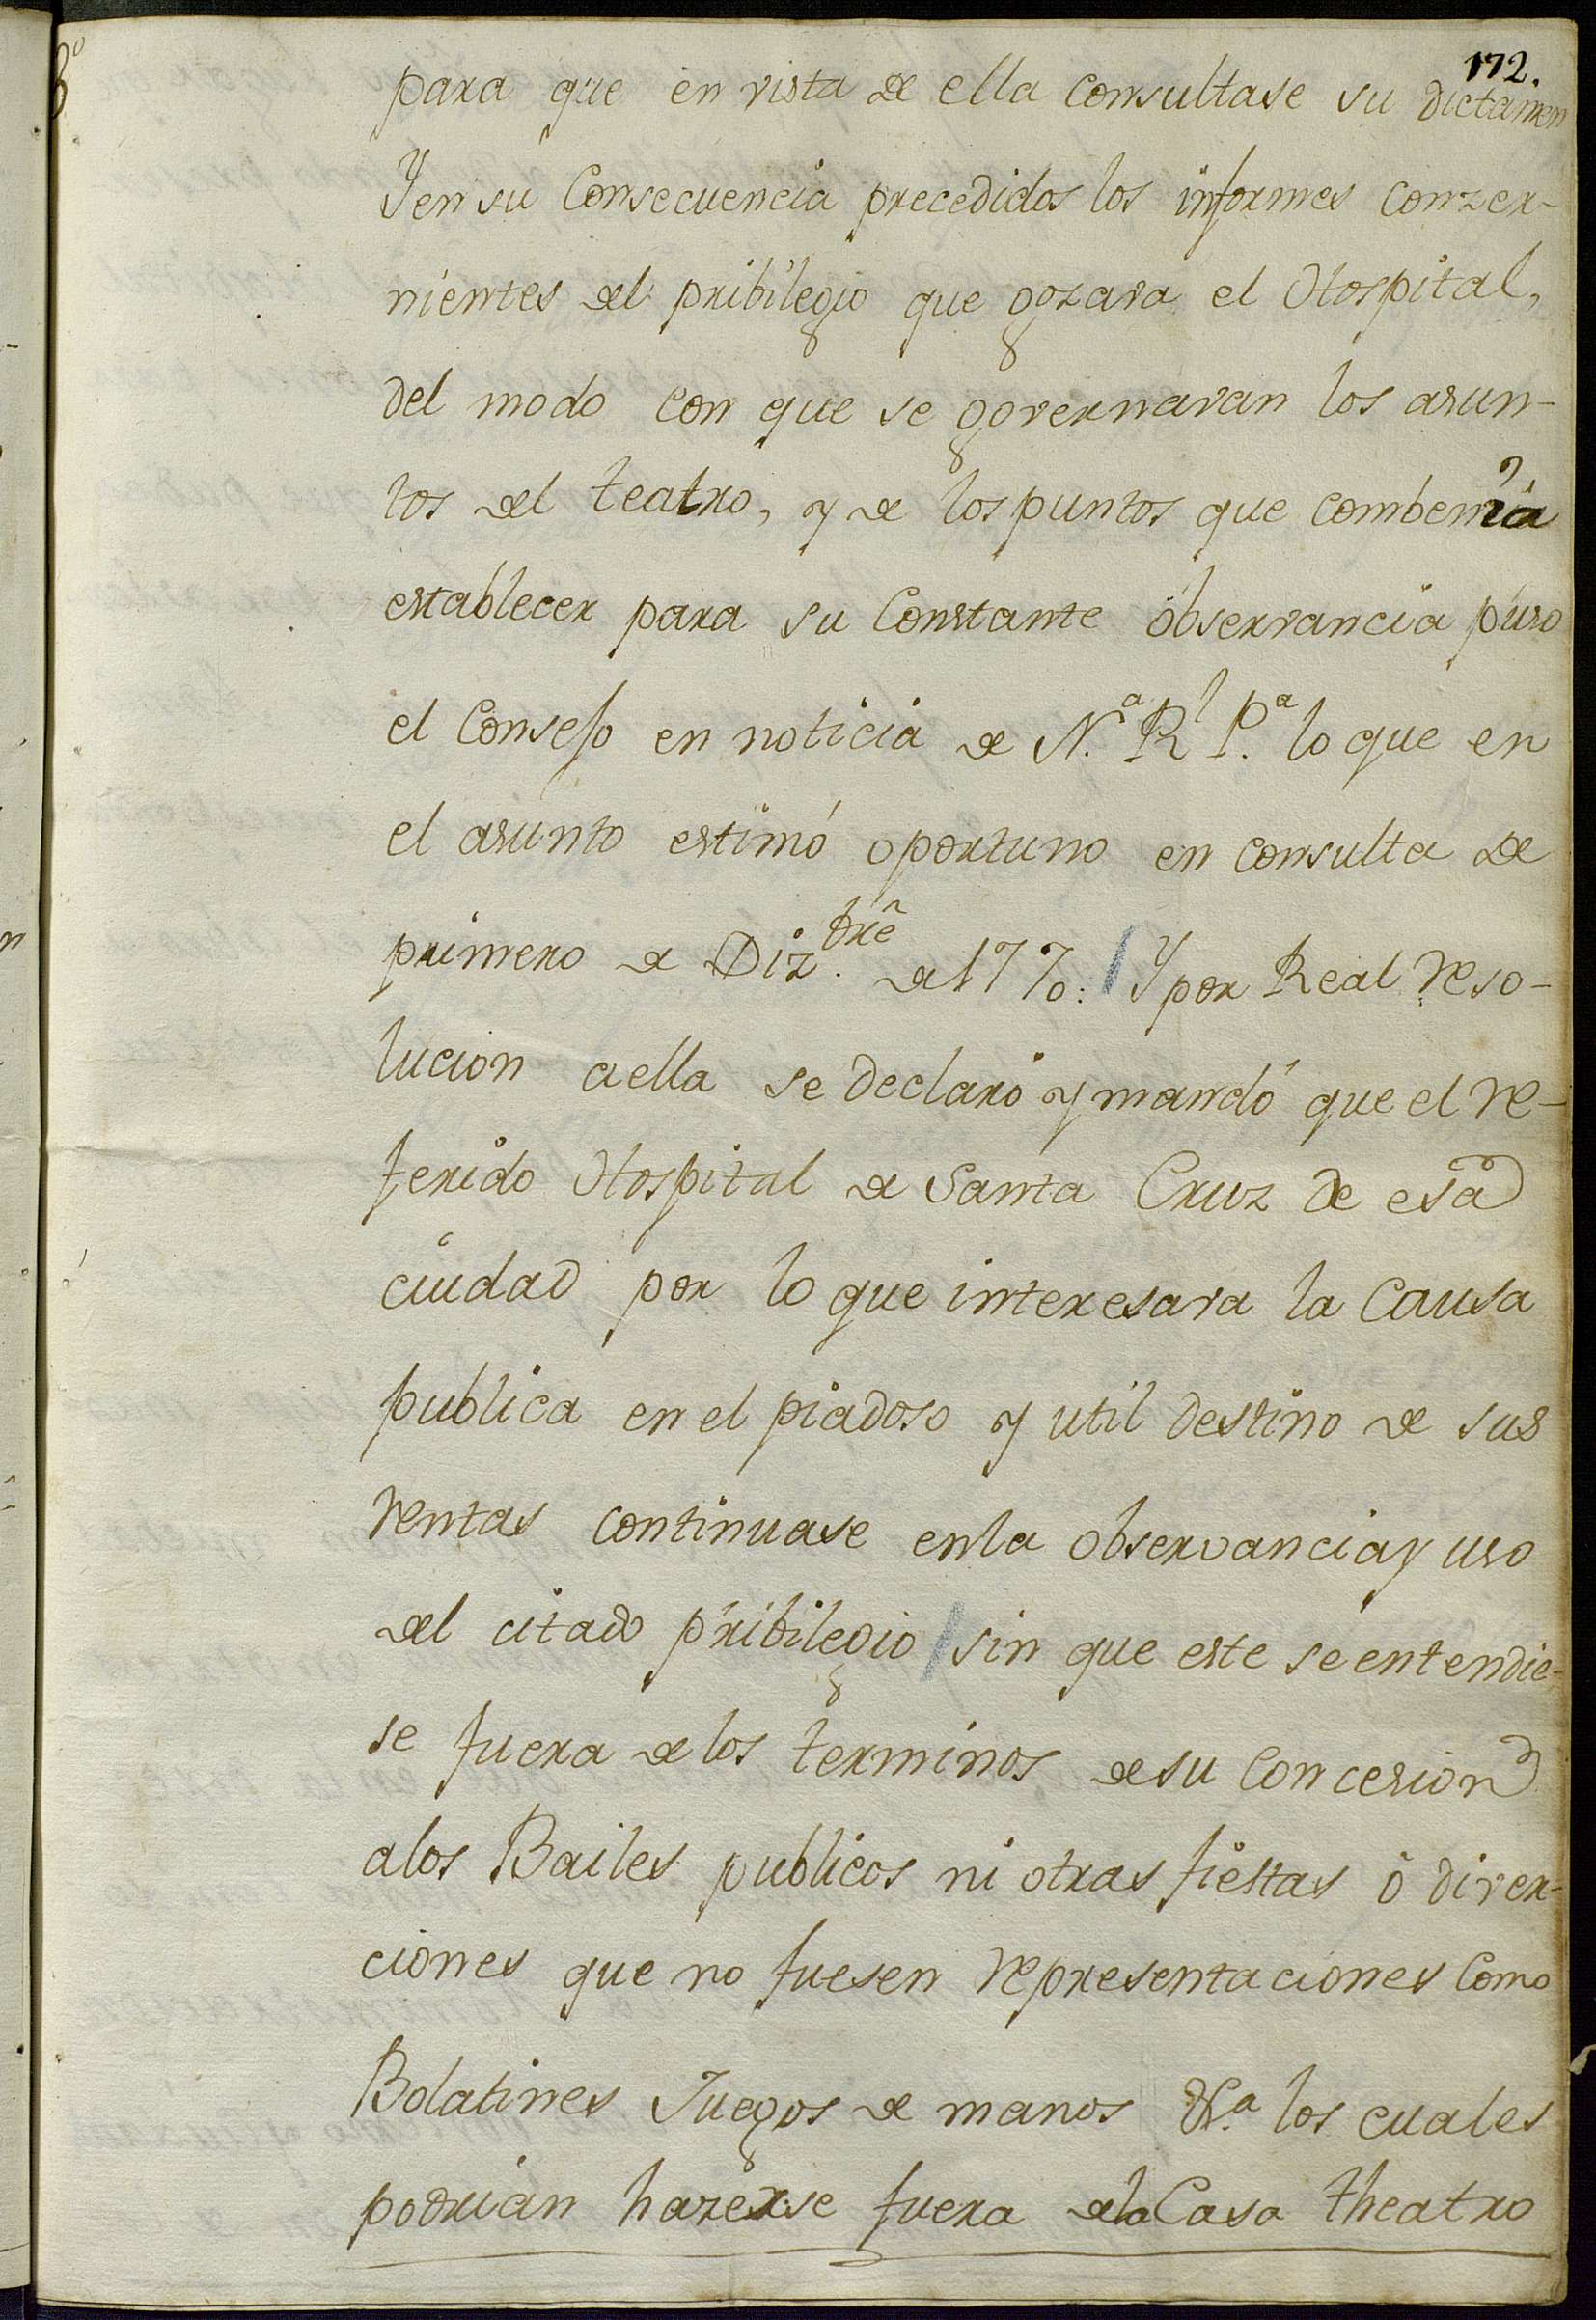 172.
para que en vista de ella consultase su dictamen
Y en su Consecuencia precedidos los informes conzer-
nientes del pribilegio que gozava el Hospital,
del modo con que se governavan los asun-
tos del teatro, y de los puntos que combenia
establecer para su Constante observancia puso
el Consejo en noticia de N.ª Rl P.ª lo que en
el asunto estimó oportuno en consulta de
primero de Diz.bre de 1770: Y por Real reso-
lucion a ella se declaró y mandó que el re-
ferido Hospital de Santa Cruz de esa
ciudad por lo que interesava la Causa
publica en el piadoso y util destino de sus
rentas continuase en la observancia y uso
del citado pribilegio sin que este se entendie-
se fuera de los terminos de su Concesion
a los Bailes publicos ni otras fiestas ó diver-
ciones que no fuesen representaciones como
Bolatines Juegos de manos &.ª los cuales
podrian hazerse fuera de la Casa theatro